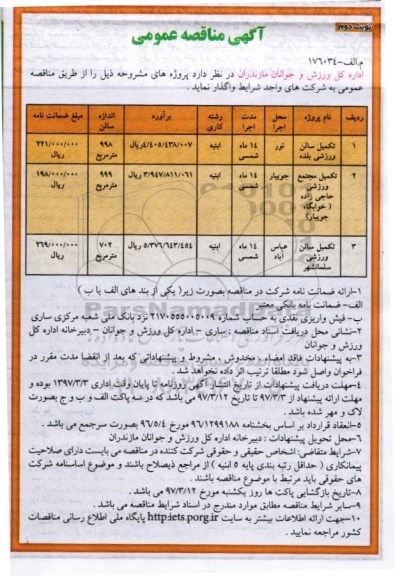 نوبت دوم
آگهی مناقصه عمومی
م.الف-۱۷۶۰۳۴
اداره کل ورزش و جوانان مازندران در نظر دارد پروژه های مشروحه ذیل را از طریق مناقصه
عمومی به شرکت های واجد شرایط واگذار نماید .
ردیف نام پروژه محل اجرا مدت اجرا رشته کاری برآورد اندازه سالن مبلغ ضمانت نامه
۱ تکمیل سالن ورزشی بلده نور ۱۴ ماه شمسی ابنیه ۴/۴۰۵/۴۳۸/۰۰۷ریال ۹۹۸ مترمربع ۲۲۱/۰۰۰/۰۰۰ ریال
۲ تکمیل مجتمع ورزشی حاجی زاده ( خوابگاه جویبار) جویبار ۱۴ ماه شمسی ابنیه ۳/۹۴۷/۸۱۱/۰۶۱ ریال ۹۹۹ مترمربع ۱۹۸/۰۰۰/۰۰۰ ریال
۳ تکمیل سالن ورزشی سلمانشهر عباس آباد ۱۴ ماه شمسی ابنیه ۵/۳۷۶/۶۴۳/۴۵۴ ریال ۷۰۲ مترمربع ۲۶۹/۰۰۰/۰۰۰ ریال
۱-ارائه ضمانت نامه شرکت در مناقصه بصورت زیر( یکی از بند های الف یا ب )
الف- ضمانت نامه بانکی معتبر
ب- فیش واریزی نقدی به حساب شماره ۲۱۷۰۵۵۵۰۰۵۰۰۹ نزد بانک ملی شعبه مرکزی ساری
۲-نشانی محل دریافت اسناد مناقصه : ساری – اداره کل ورزش و جوانان – دبیرخانه اداره کل
ورزش و جوانان
۳-به پیشنهادات فاقد امضاء ، مخدوش ، مشروط و پیشنهاداتی که بعد از انقضا مدت مقرر در
فراخوان واصل شود مطلقا ترتیب اثر داده نخواهد شد .
۴-مهلت دریافت پیشنهادات از تاریخ انتشار آگهی روزنامه تا پایان وقت اداری ۱۳۹۷/۳/۳ بوده و
مهلت ارائه پیشنهاد از ۹۷/۳/۳ تا تاریخ ۹۷/۳/۱۲ می باشد که در سه پاکت الف و ب و ج بصورت
لاک و مهر شده باشد .
۵-انعقاد قرارداد بر اساس بخشنامه ۹۶/۱۲۹۹۱۸۸ مورخ ۹۶/۵/۴ بصورت سرجمع می باشد .
۶-محل تحویل پیشنهادات : دبیرخانه اداره کل ورزش و جوانان مازندران
۷-شرایط متقاضی: اشخاص حقیقی و حقوقی شرکت کننده در مناقصه می بایست دارای صلاحیت
پیمانکاری ( حداقل رتبه بندی پایه ۵ ابنیه ) از مراجع ذیصلاح باشند و موضوع اساسنامه شرکت
های حقوقی باید مرتبط با موضوع مناقصه باشند .
۸-تاریخ بازگشایی پاکت ها روز یکشنبه مورخ ۹۷/۳/۱۲ می باشد .
۹-سایر شرایط مناقصه مطابق موارد مندرج در اسناد شرایط مناقصه می باشد .
۱۰-جهت ارائه اطلاعات بیشتر به سایت http:iets.porg.ir پایگاه ملی اطلاع رسانی مناقصات
کشور مراجعه نمایید .